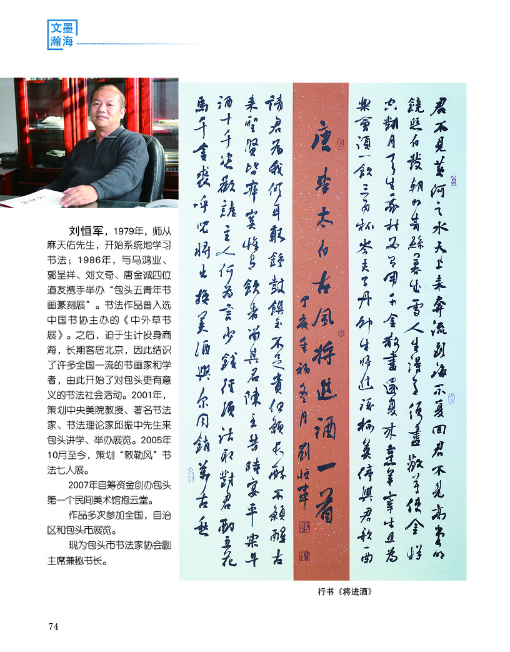 文墨
瀚海
刘恒军，1979年，师从
麻天佑先生，开始系统地学习
书法；1986年，与马鸿业、
郭呈祥、刘文奇、唐金诚四位
道友携手举办“包头五青年书
画篆刻展”。书法作品曾入选
中国书协主办的《中外草书
展》。之后，迫于生计投身商
海，长期客居北京，因此结识
了许多全国一流的书画家和学
者，由此开始了对包头更有意
义的书法社会活动。2001年，
策划中央美院教授、著名书法
家、书法理论家邱振中先生来
包头讲学、举办展览。2005年
10月至今，策划“敕勒风”书
法七人展。
2007年自筹资金创办包头
第一个民间美术馆抱云堂。
作品多次参加全国，自治
区和包头市展览。
现为包头市书法家协会副
主席兼秘书长。
君不见黄河之水天上来奔流到海不复回君不见高堂明
镜悲白发朝如青丝暮成雪人生得意须尽欢莫使金樽
空对月天生我材必有用千金散尽还复来烹羊宰牛且为
乐会须一饮三百杯岑夫子丹丘生将进酒杯莫停与君歌一曲
唐李太白古风将进酒一首
丁亥年初冬月刘恒军
请君为我倾耳听钟鼓馔玉不足贵但愿长醉不愿醒古
来圣贤皆寂寞惟有饮者留其名陈王昔时宴平乐斗
酒十千恣欢谑主人何为言少钱径须沽取对君酌五花
马千金裘呼儿将出换美酒与尔同销万古愁
行书《将进酒》
74